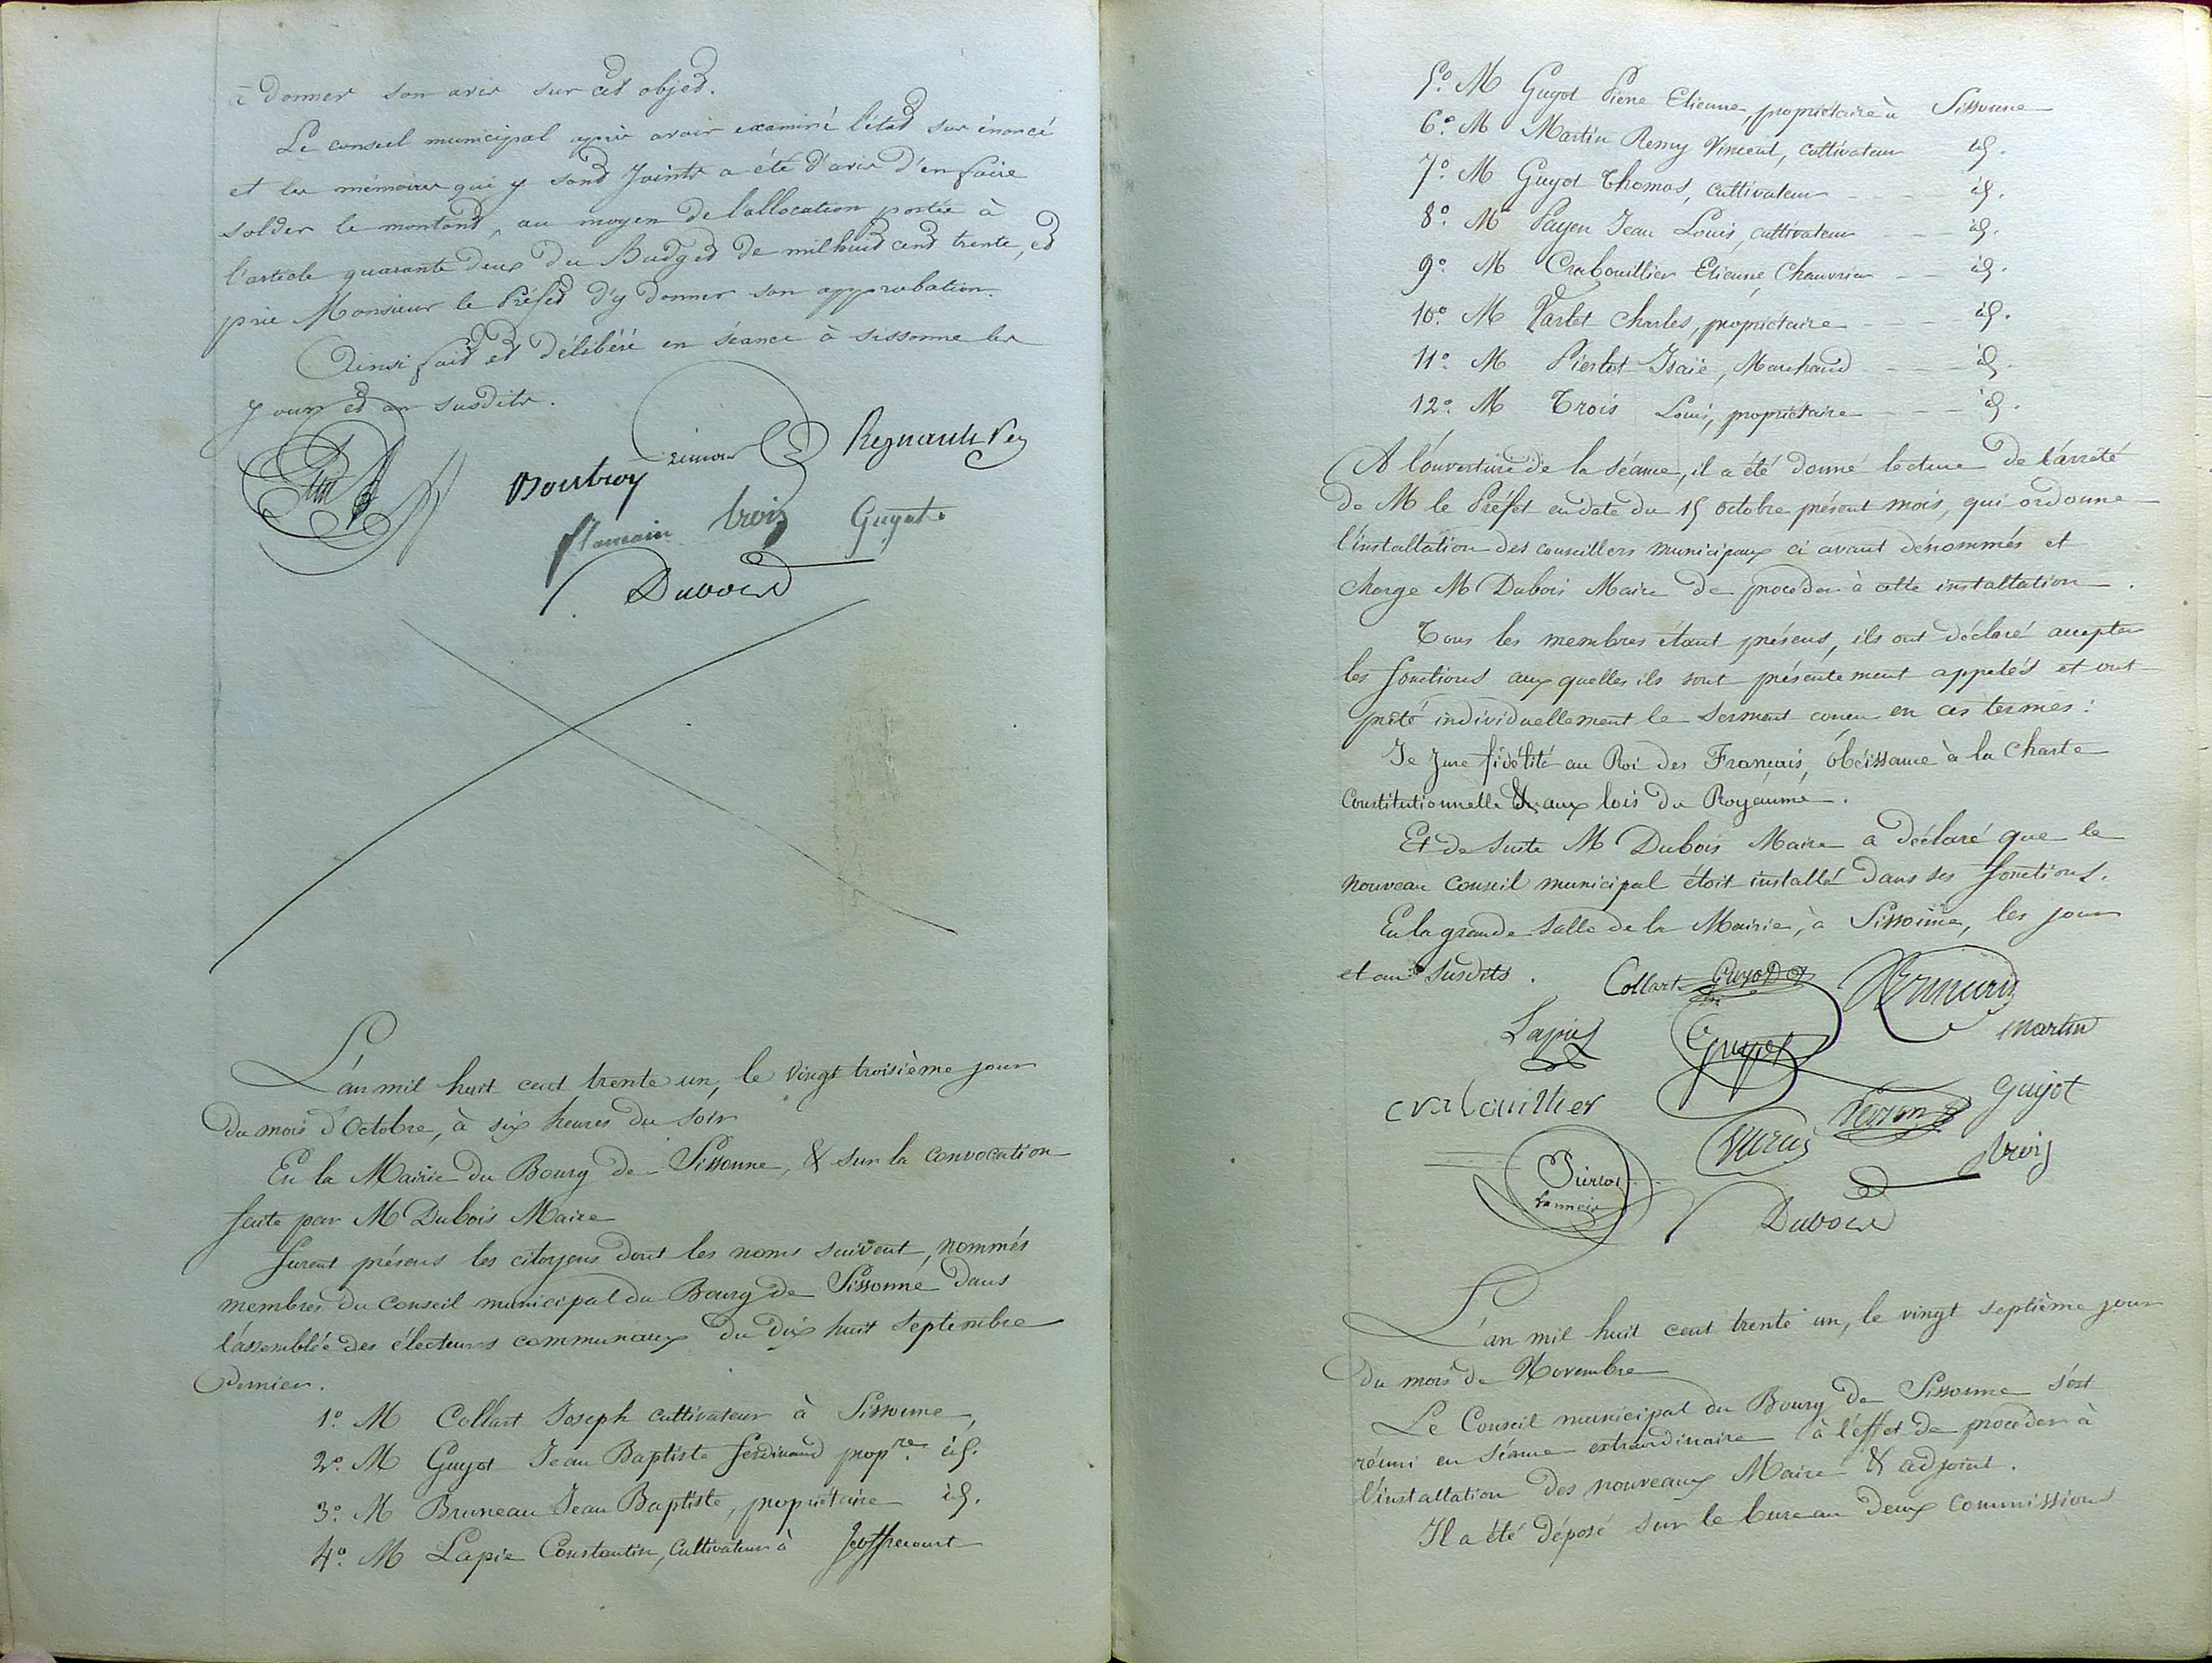 à donner son avis sur cet objet.
Le conseil municipal après avoir examiné l'état sus énoncé
et les mémoires qui y sont Joints a été d'avis d'en faire
solder le montant, au moyen de l'allocation portée à
l'article quarante deux du Budget de mil huit cent trente, et
prie Monsieur le Préfet d'y donner son approbation.
Ainsi fait et délibéré en séance à sissonne les
Jours et an susdits.
Simon Regnault
Boutroy
trois Guyot
Dubois
L'an mil huit cent trente un, le vingt troisième jour
du mois d'Octobre, à six heures du soir
En la Mairie du Bourg de Sissonne, & sur la convocation
faite par M Dubois Maire
furent présens les citoyens dont les noms suivent, nommés
membres du conseil municipal du Bourg de Sissonne dans
l'assemblée des électeurs communaux du dix huit septembre
dernier.
1.° M Collart Joseph cultivateur à Sissonne,
2.° M Guyot Jean Baptiste ferdinand prop.re id.
3.° M Bruneau Jean Baptiste, propriétaire id.
4.° M Lapie Constantin, cultivateur à Jeoffrecourt
5.° M Guyot Pierre Etienne, propriétaire à Sissonne
6.° M Martin Remy Vincent, cultivateur id.
7.° M Guyot Thomas, cultivateur - - id.
8.° M Payen Jean Louis, cultivateur - - id.
9.° M Crabouillier Etienne, Chanvrier - - id.
10.° M Varlet Charles, propriétaire - - id.
11.° M Pierlot Isaïe, Marchand - - - id.
12.° M Trois Louis, propriétaire - - - id.
A l'ouverture de la séance, il a été donné lecture de l'arrêté
de M le Préfet en date du 15 octobre présent mois, qui ordonne
l'installation des conseillers municipaux ci avant dénommés et
charge M Dubois Maire de procéder à cette installation.
Tous les membres étant présens, ils ont déclaré accepter
les fonctions aux quelles ils sont présentement appelés et ont
prêté individuellement le serment conçu en ces termes:
Je Jure fidélité au Roi des Français, obéissance à la Charte
Constitutionnelle & aux lois du Royaume.
Et de suite M Dubois Maire a déclaré que le
nouveau conseil municipal étoit installé dans ses fonctions.
En la grande salle de la Mairie, à Sissonne, les jour
et an susdits.
Collart Guyot
Lapie Guyot Martin
crabouillier Guyot
Pierlot trois
Dubois
L'an mil huit cent trente un, le vingt septième jour
du mois de Novembre
Le Conseil municipal du Bourg de Sissonne s'est
réuni en séance extraordinaire à l'effet de procéder à
l'installation des nouveaux Maire & adjoint.
Il a été déposé sur le bureau deux commissions